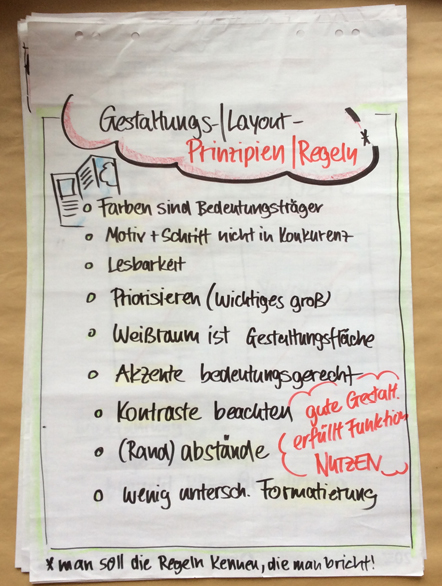 Gestaltungs-|Layout-
Prinzipien|Regeln*
o Farben sind Bedeutungsträger
o Motiv + Schrift nicht in Konkurenz
o Lesbarkeit
o Priorisieren (Wichtiges groß)
o Weißraum ist Gestaltungsfläche
o Akzente bedeutungsgerecht
o Kontraste beachten
gute Gestalt.
erfüllt Funktion
NUTZEN
o (Rand)abstände
o wenig untersch. Formatierung
* man soll die Regeln kennen, die man bricht!